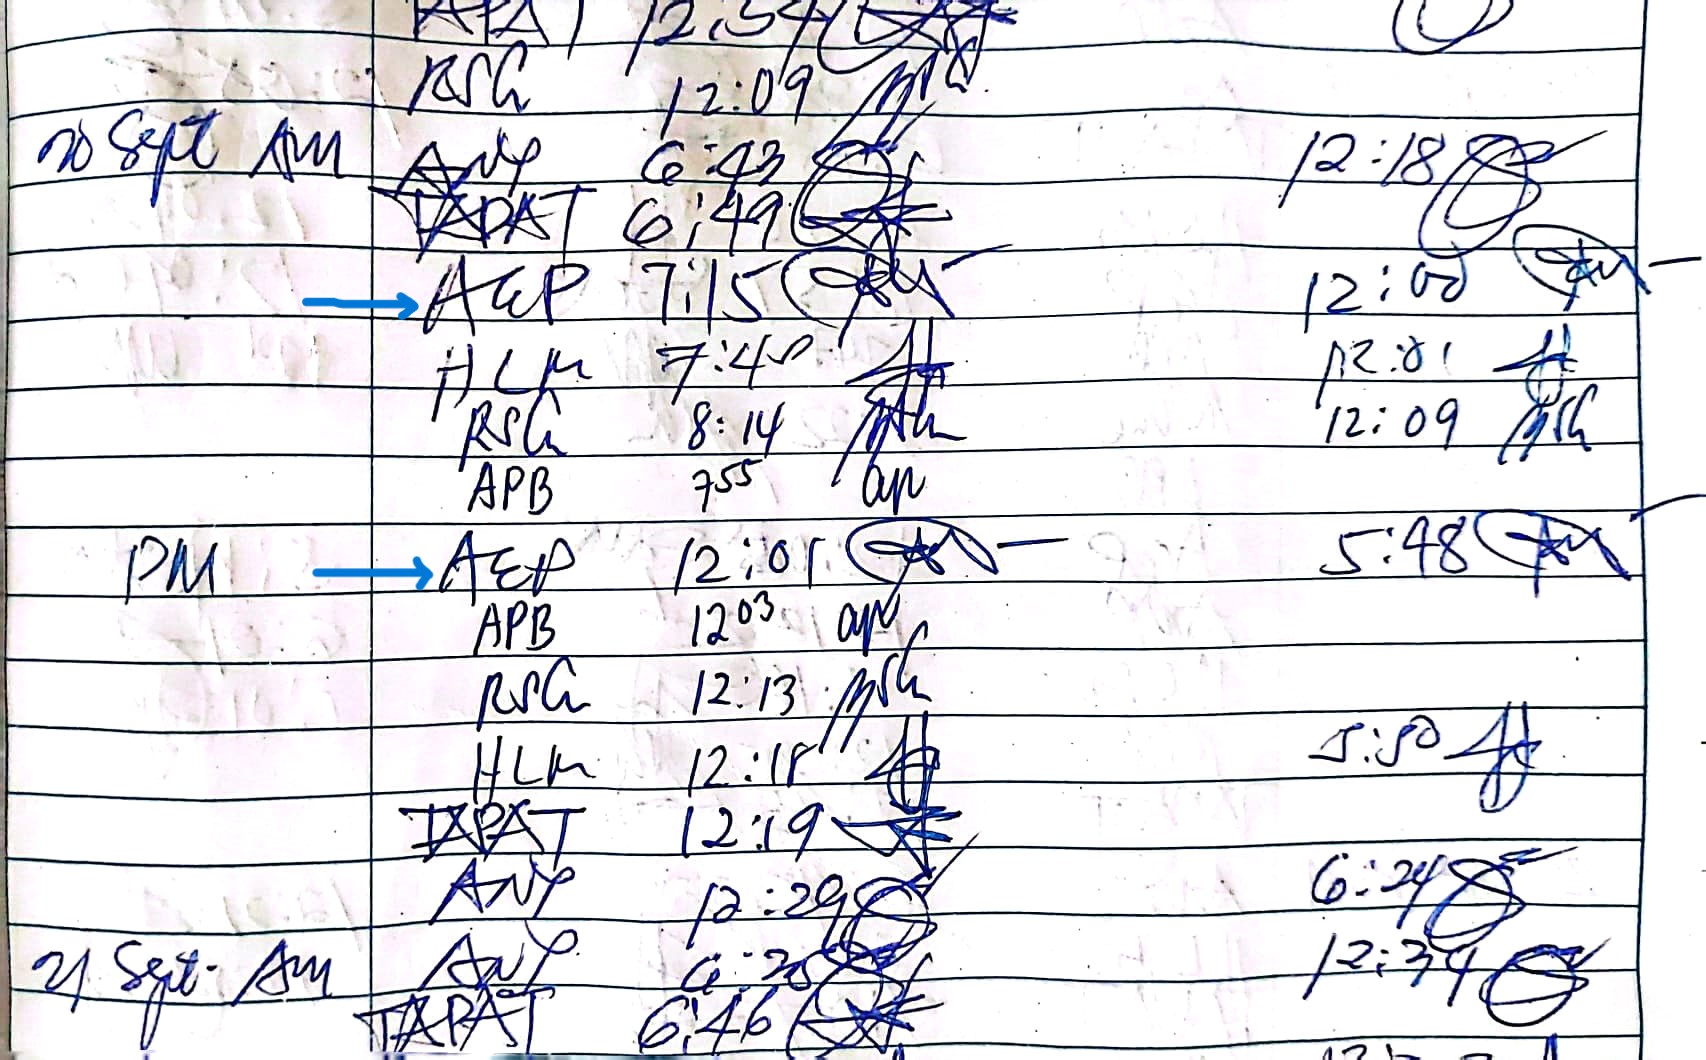 TAPAT 12:54
RSG 12:09
20 Sept AM ANP 6:43 12:18
TAPAT 6:49
AEP 7:15 12:00
HLM 7:40 12:01
RSG 8:14 12:09
APB 755 ap
PM AEP 12:01 5:48
APB 1203 ap
RSG 12:13
HLM 12:18 5:50
TAPAT 12:19
ANP 12:29 6:24
21 Sept. AM ANP 12:34
TAPAT 6:46